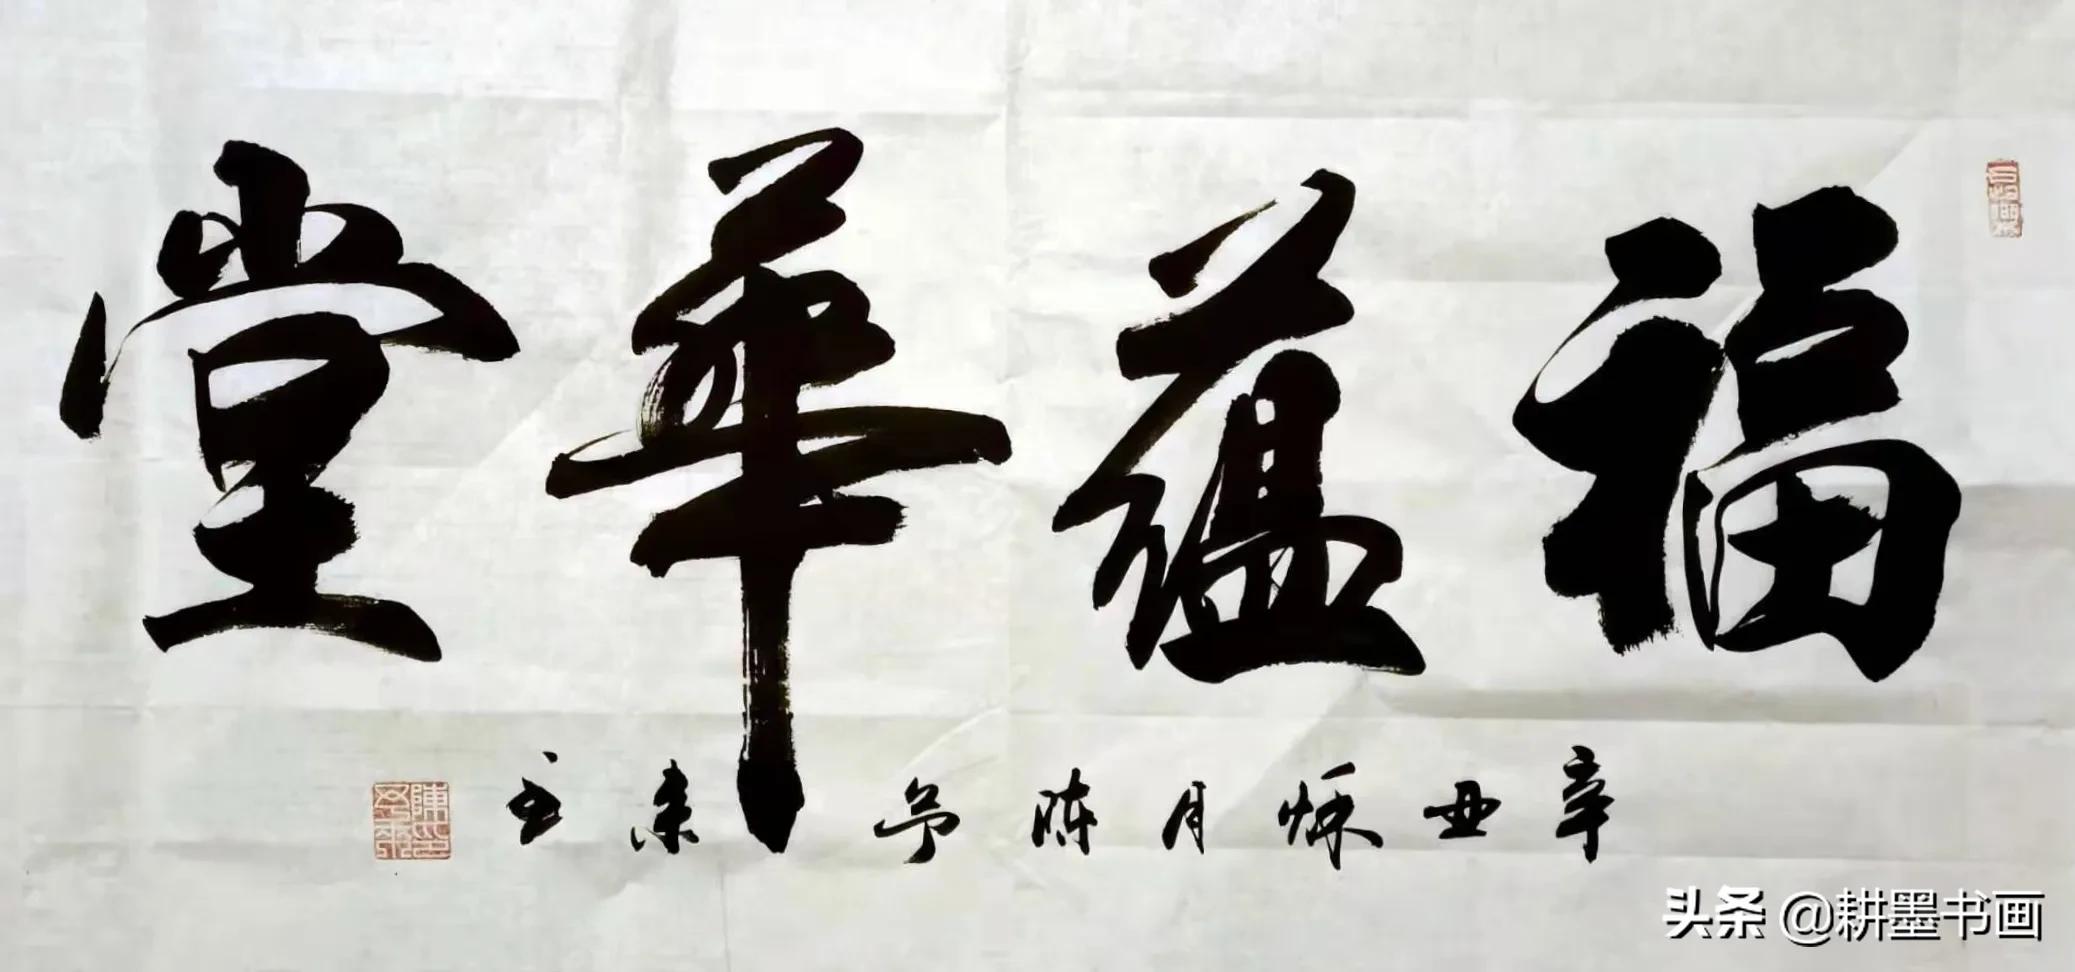 福蕴華堂
辛丑秌月陈
来书
头条 @耕墨书画